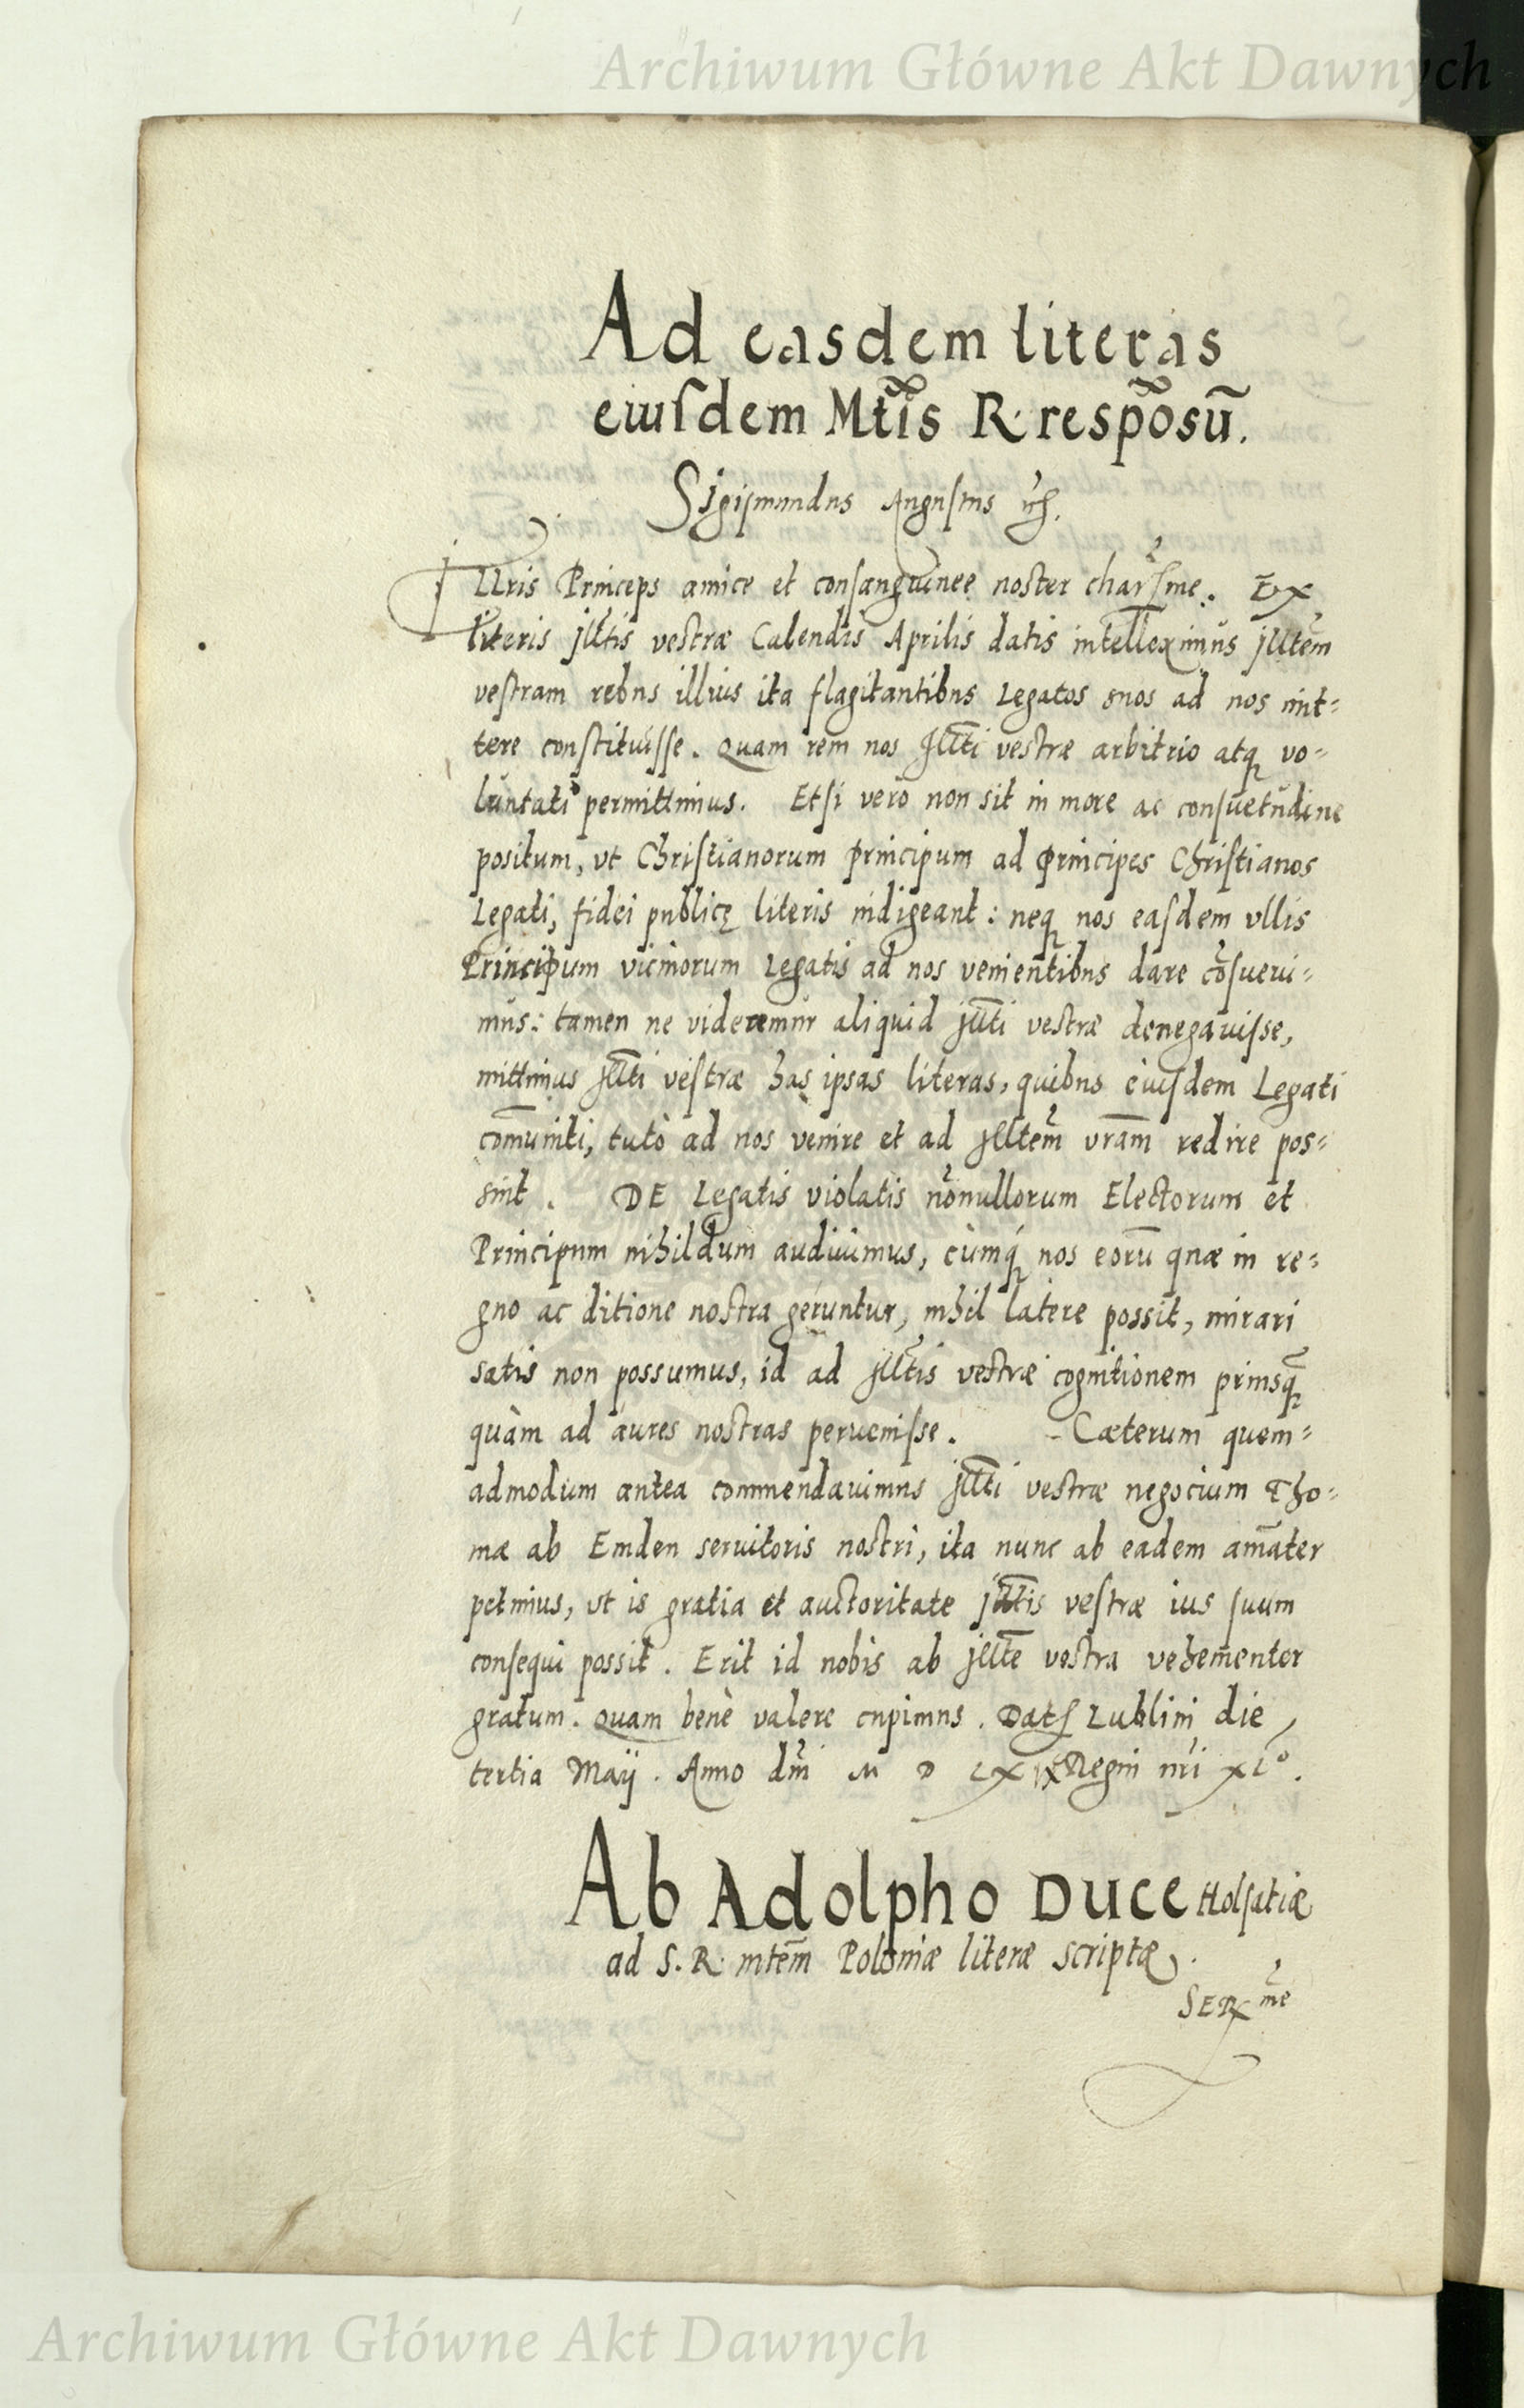 Archiwum Główne Akt Dawnych
Ad easdem literas
eiusdem Mt̃is R. respõsũ.
Sigismundus Augustus
Illris Princeps amice et consanguinee noster charisme. Ex
literis Illtis vestræ Calendis Aprilis datis intelleximus Illtem
vestram rebus illius ita flagitantibus Legatos suos ad nos mit=
tere constituisse. Quam rem nos Illti vestræ arbitrio atq vo=
luntati permittimus. Etsi vero non sit in more ac consuetudine
positum, vt Christianorum principum ad principes Christianos
Legati, fidei publicę literis indigeant: neq nos easdem vllis
Principum vicinorum Legatis ad nos venientibus dare cõsueui=
mus: tamen ne videremur aliquid Illti vestræ denegauisse,
mittimus Illti vestræ has ipsas literas, quibus eiusdem Legati
cõmuniti, tutò ad nos venire et ad Illtem vrãm redire pos=
sint. DE Legatis violatis nõnullorum Electorum et
Principum nihildum audiuimus, cùmq nos eorũ quæ in re=
gno ac ditione nostra geruntur, nihil latere possit, mirari
satis non possumus, id ad Illtis vestræ cognitionem priusq̃
quàm ad aures nostras peruenisse. - Cæterum quem=
admodum antea commendauimus Illti vestræ negocium Tho=
mæ ab Emden seruitoris nostri, ita nunc ab eadem amãter
petimus, vt is gratia et auctoritate Illtis vestræ ius suum
consequi possit. Erit id nobis ab Illte vestra vehementer
gratum. Quam benè valere cupimus. Dat Lublini die
tertia Maij. Anno dñi M D LXIX Regni nri XLº.
Ab Adolpho Duce Holsatiæ
ad S. R. mtẽm Poloniæ literæ scriptæ.
SER me
Archiwum Główne Akt Dawnych